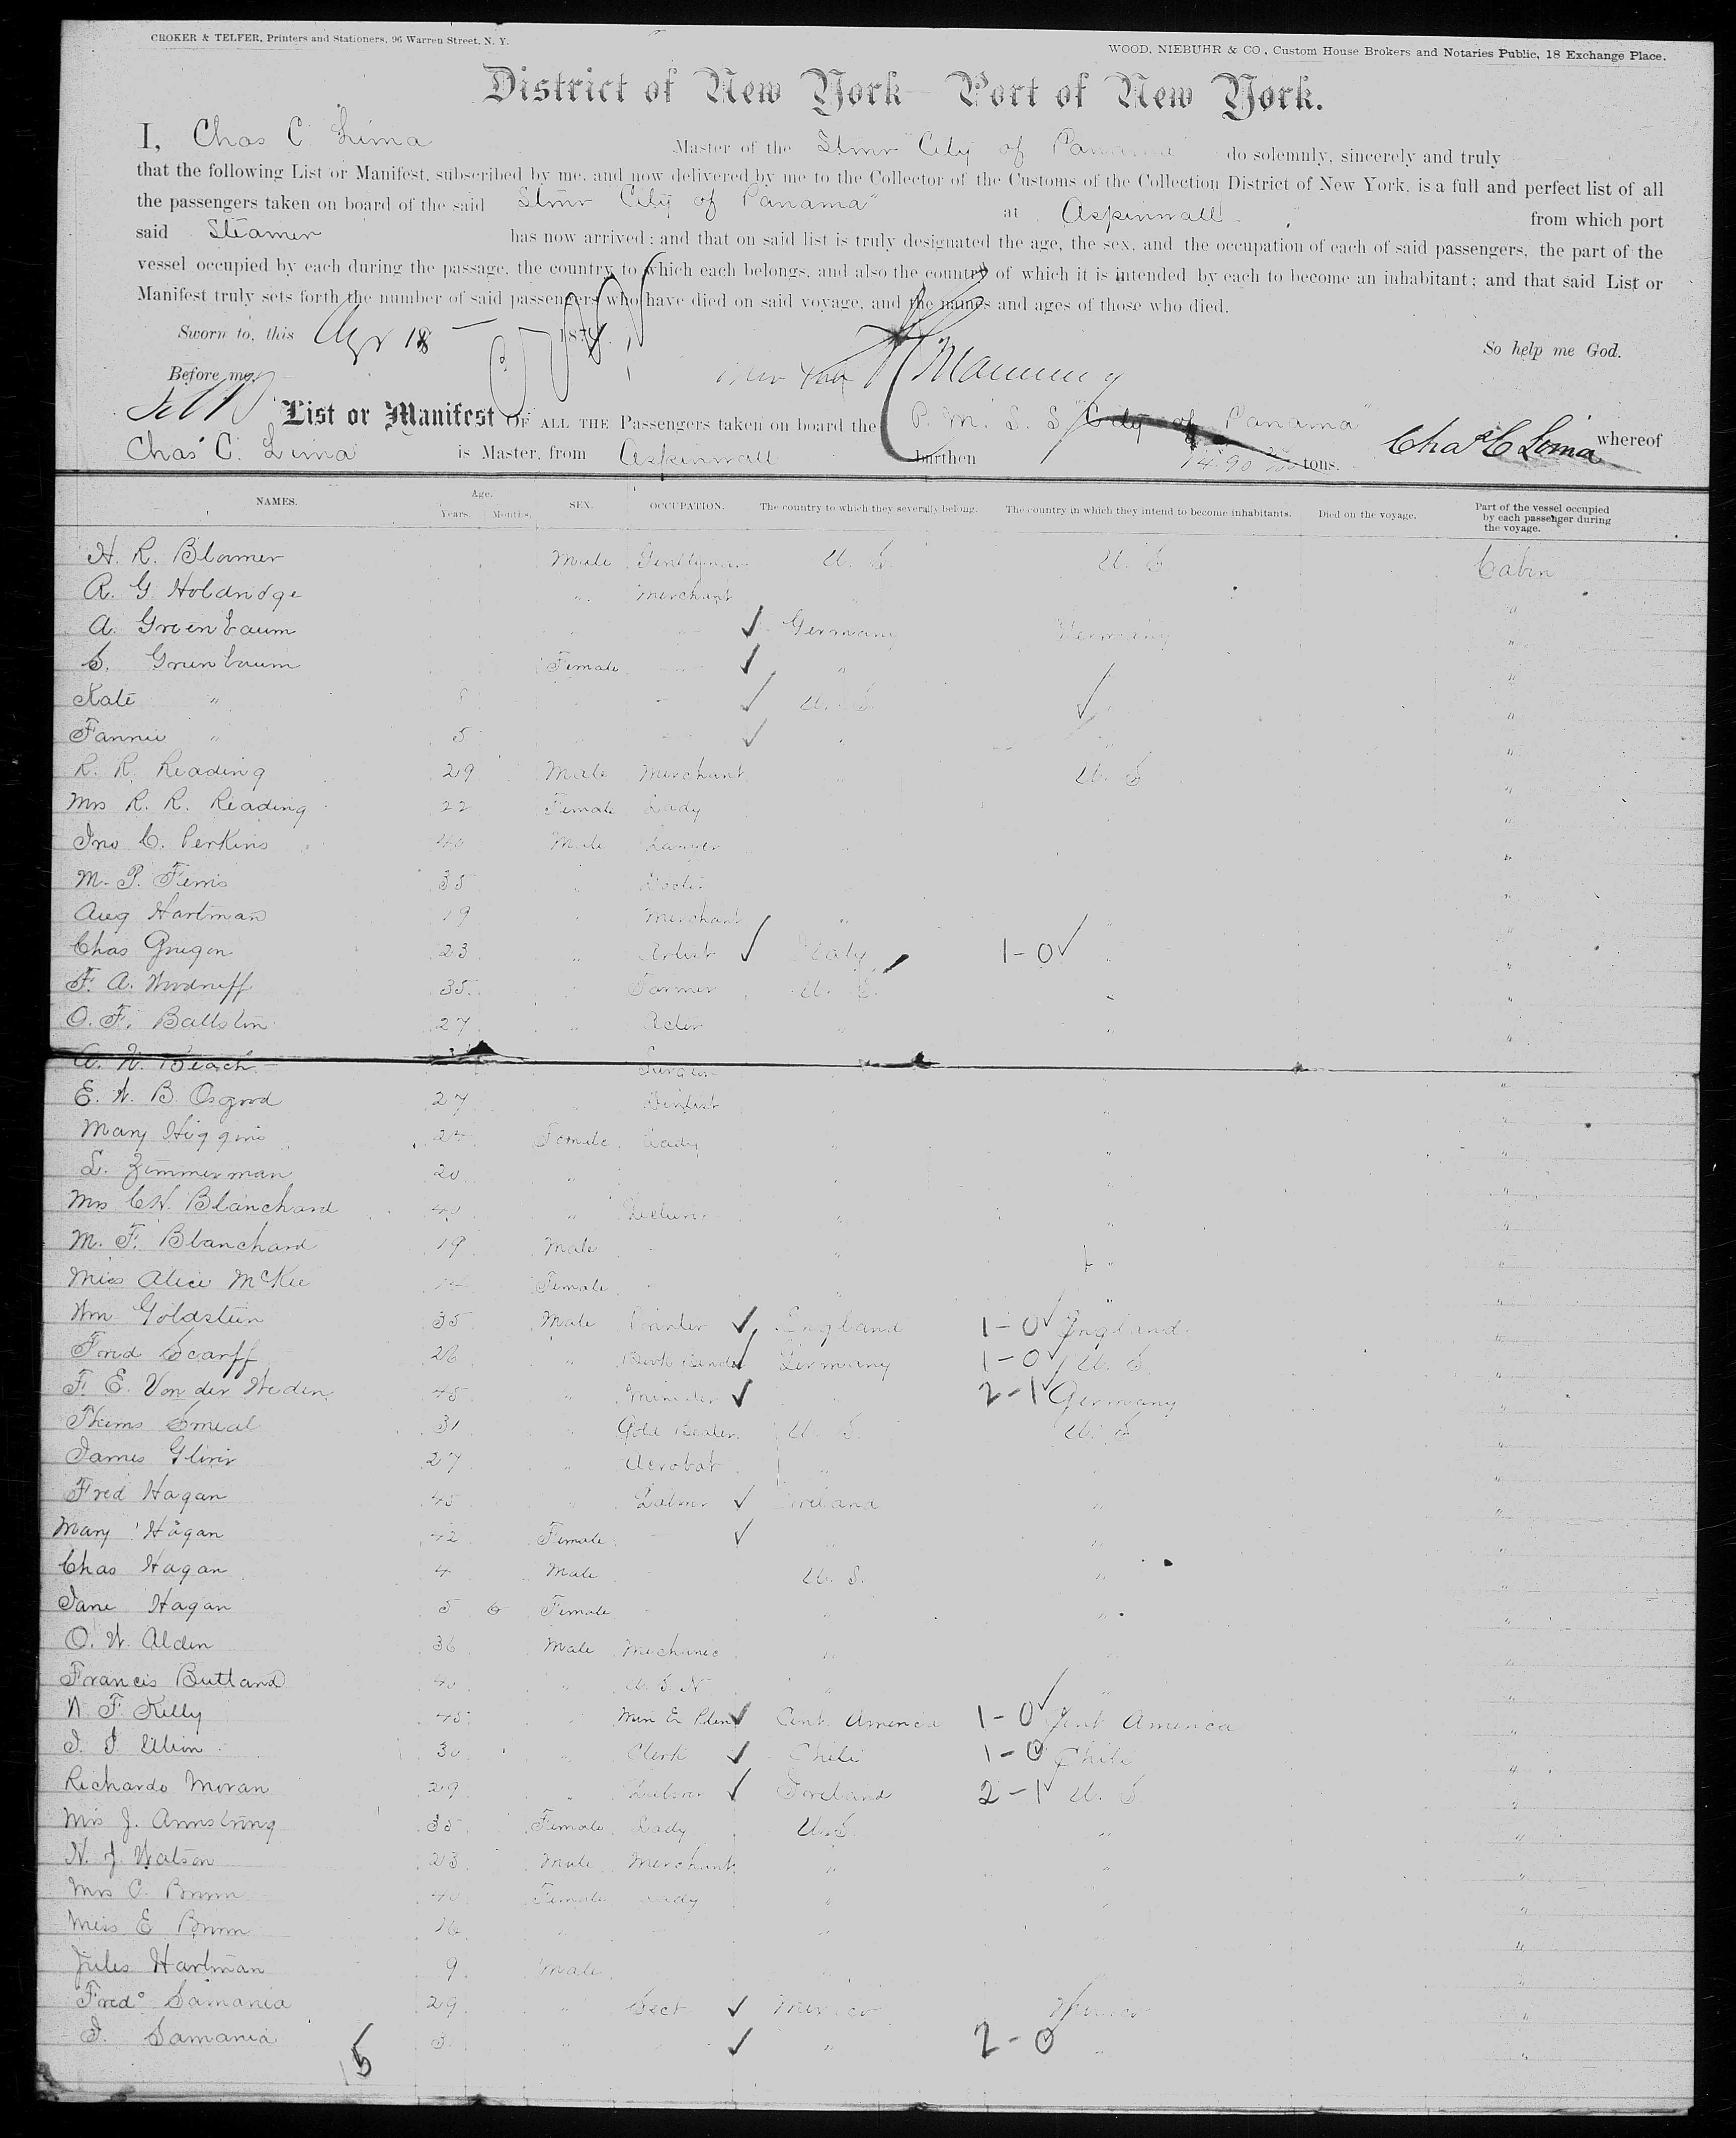 CROKER & TELFER, Printers and Stationers, 96 Warren Street, N. Y.
WOOD, NIEBUHR & CO., Custom House Brokers and Notaries Public, 18 Exchange Place.
District of New York Port of New York.
I, Chas C. Lima Master of the Stmr "City of Panama" do solemnly, sincerely and truly
that the following List or Manifest, subscribed by me, and now delivered by me to the Collector of the Customs of the Collection District of New York, is a full and perfect list of all
the passengers taken on board of the said Stmr City of Panama" at Aspinwall from which port
said Steamer has now arrived; and that on said list is truly designated the age, the sex, and the occupation of each of said passengers, the part of the
vessel occupied by each during the passage, the country to which each belongs, and also the country of which it is intended by each to become an inhabitant; and that said List or
Manifest truly sets forth the number of said passengers who have died on said voyage, and the names and ages of those who died.
Sworn to, this Apr 18 187 So help me God.
Before me, Manning
List or Manifest OF ALL THE Passengers taken on board the P. M. S. S "City of Panama" Chas C Lima whereof
Chas C. Lima is Master, from Aspinwall burthen 1490 tons.
NAMES. Age. Years. Months. SEX. OCCUPATION. The country to which they severally belong. The country in which they intend to become inhabitants. Died on the voyage. Part of the vessel occupied by each passenger during the voyage.
H. R. Bloomer Male Gentleman U. S U. S Cabin
R. G Holdridge " Merchant "
A. Greenbaum Germany Germany "
C. Greenbaum Female " "
Kate " U. S. "
Fannie " 5 " "
R. R. Reading 29 Male Merchant U. S "
Mrs R. R. Reading 22 Female Lady "
Jno C. Perkins 40 Male Lawyer "
M. P. Ferris 35 "
Aug Hartman 19 Merchant " "
Chas Gregon 23 " Artist Italy 1-0 "
F. A. Woodruff 35 " Farmer U. S. " "
O. F. Ballston 27 " Actor " "
A. W. Beach Surgeon " "
E. W. B. Osgood 27 Dentist " "
Mary Higgins 24 Female Lady " "
L. Zimmerman 20 " " "
Mrs C H. Blanchard 40 " " " "
M. F. Blanchard 19 Male " " "
Miss Alice McKee 14 Female " "
Wm Goldstein 35 Male Printer England 1-0 England "
Fred Scarff 26 " Book Binder Germany 1-0 U. S "
F. E. Von der Heden 45 " Minister " 2-1 Germany "
Smeal 31 " Gold Beater U. S. U. S "
James 27 " Acrobat " "
Fred Hagan 45 " Ireland " "
Mary Hagan 42 Female " " "
Chas Hagan 4 Male U. S. " "
Jane Hagan 5 6 Female " " "
O. W. Alden 36 Male Mechanic " "
Francis Butland 40 " U. S. N " "
W. F. Kelly 45 " Cent. America 1-0 Cent America "
30 " Clerk Chili 1-0 Chili "
Richardo Moran 29 " Ireland 2-1 U. S "
Mrs J. Armstrong 35 Female Lady U. S. " "
W. J. Watson 23 Male Merchant " " "
Mrs C. Brum 40 Female Lady " " "
Miss E Brum 16 " " "
Jules Hartman 9 Male "
Fredo Samania 29 " Sect Mexico Mexico "
J. Samania 3 " " 2-0 " "
15